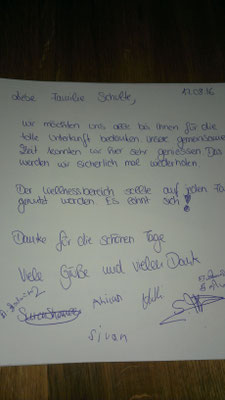 Liebe Familie Schulte, 17.08.16
wir möchten uns alle bei Ihnen für die
tolle Unterkunft bedanken unsere gemeinsame
Zeit konnten wir hier sehr geniessen. Das
werden wir sicherlich mal wiederholen.
Der Wellnessbereich sollte auf jeden Fall
genutzt werden. Es lohnt sich!
Danke für die schönen Tage
Viele Grüße und vielen Dank
Sivan